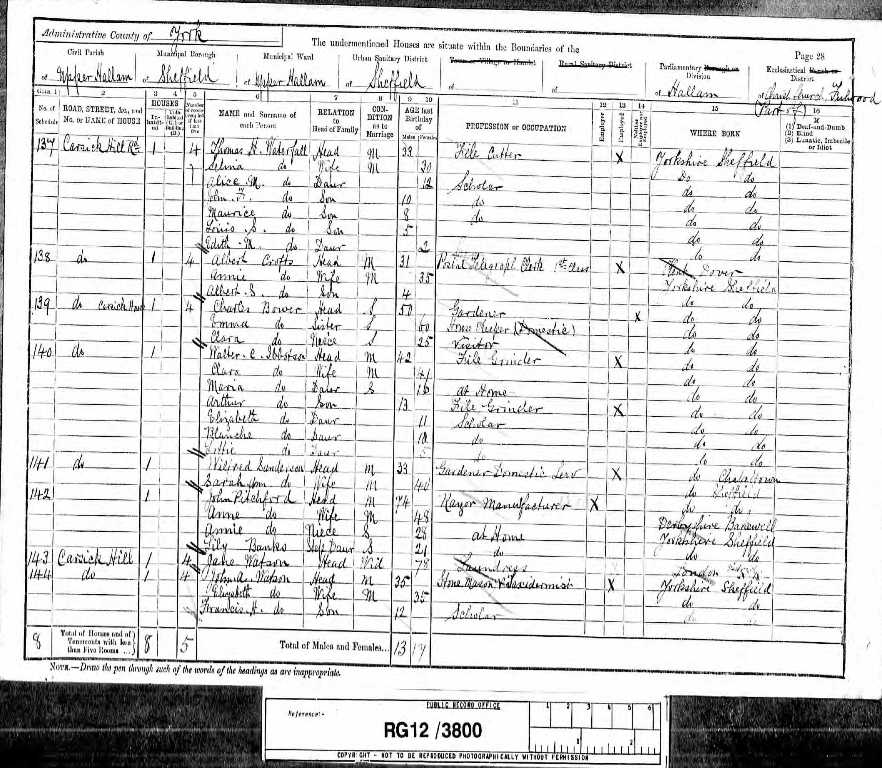 Administrative County of York
The undermentioned Houses are situate within the Boundaries of the
Page 28
Civil Parish
of Upper Hallam
Municipal Borough
of Sheffield
Municipal Ward
of Upper Hallam
Urban Sanitary District
of Sheffield
Town or Village or Hamlet
of
Rural Sanitary District
of
Parliamentary Borough or Division
of Hallam
Ecclesiastical Parish or District
of Christ Church, Fulwood (Part of)
No. of Schedule
ROAD, STREET, &c., and No. or NAME of HOUSE
HOUSES
NAME and Surname of each Person
RELATION to Head of Family
CONDITION as to Marriage
AGE last Birthday of
Males Females
PROFESSION or OCCUPATION
Employer
Employed
WHERE BORN
If (1) Deaf-and-Dumb (2) Blind (3) Lunatic, Imbecile or Idiot
137 Carsick Hill Rd 1 4 Thomas H. Waterfall Head M 33 File Cutter X Yorkshire Sheffield
Selina do Wife M 30 Do do
Alice M. do Daur 12 Scholar do do
John F. do Son 10 do do do
Maurice do Son 8 do do do
Louis S. do Son 5 do do
Edith M. do Daur 2 do do
138 do 1 4 Albert Crofts Head M 31 Postal Telegraph Clerk X Kent Dover
Annie do Wife M 35 Yorkshire Sheffield
Albert S. do Son 4 do do
139 do Carsick House 1 4 Charles Bower Head S 50 Gardener X do do
Emma do Sister S 60 House Keeper (Domestic) do do
Clara do Niece S 25 Visitor do do
140 do 1 Walter C. Ibbotson Head M 42 File Grinder X do do
Clara do Wife M 41 do do
Maria do Daur S 16 at Home do do
Arthur do Son 13 File Grinder X do do
Elizabeth do Daur 11 Scholar do do
Blanche do Daur 10 do do do
Lottie do Daur do do do
141 do 1 Wilfred Sanderson Head M 33 Gardener Domestic Serv X do Chapeltown
Sarah Ann do Wife M 40 do Sheffield
142 1 John Pitchford Head M 74 Razor Manufacturer X do do
Anne do Wife M 48 Derbyshire Bakewell
Annie do Niece S 28 at Home Yorkshire Sheffield
Lily Banks Step Daur S 21 do do do
143 Carsick Hill 1 4 Jane Watson Head Wid 78 Laundress London
144 do 1 4 John A. Watson Head M 35 Stone Mason & Taxidermist X Yorkshire Sheffield
Elizabeth do Wife M 35 do do
Francis H. do Son 12 Scholar do do
8 Total of Houses and of Tenements with less than Five Rooms 8 5 Total of Males and Females... 13 17
NOTE.—Draw the pen through such of the words of the headings as are inappropriate.
PUBLIC RECORD OFFICE
Reference:-
1 2 3 4 5 6
RG12 /3800
1 2
COPYRIGHT - NOT TO BE REPRODUCED PHOTOGRAPHICALLY WITHOUT PERMISSION